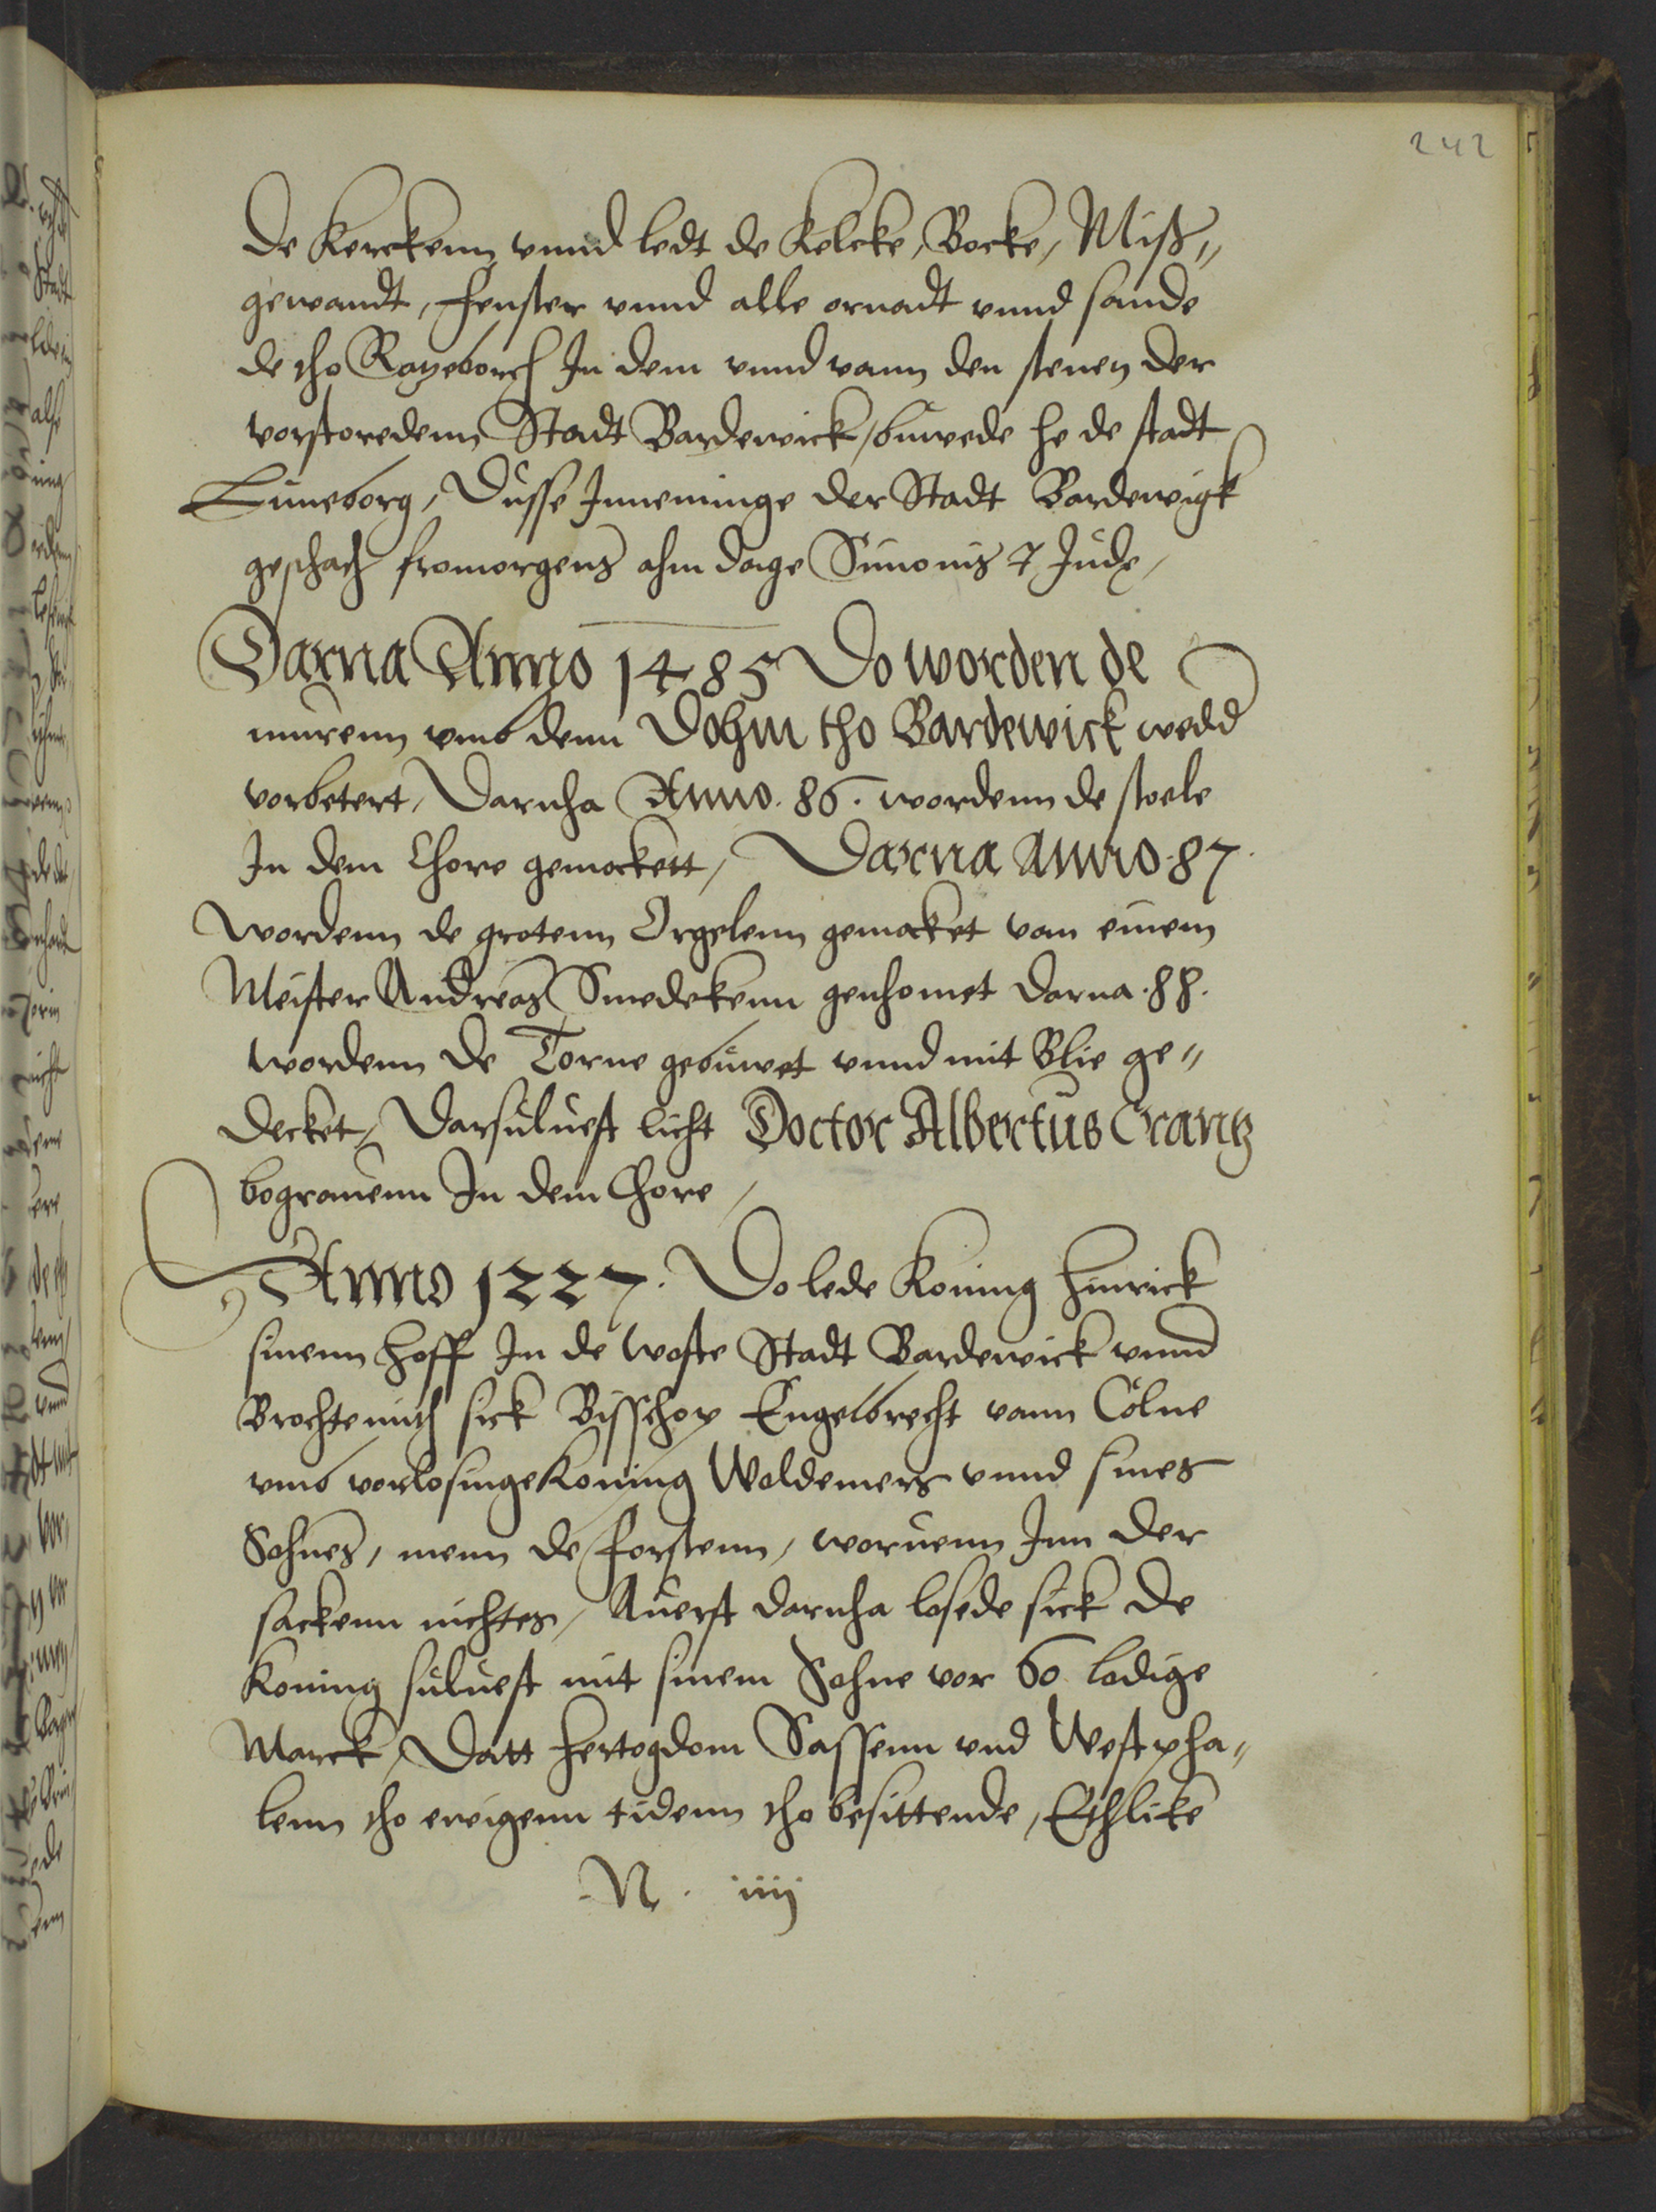 242
de Kerckenn vnnd ledt de Kelcke, Boeke, Miß„
gewandt, Fenster vnnd alle ornadt vnnd sande
de tho Ratzeborch In dem vnnd vann den stenen der
vorstoredenn Stadt Bardewick, buwede he de stadt
Luneborg, Dusse Inneminge der Stadt Bardewigk
geschach fromorgens ahm dage Simonis & Jude,
Darna Anno 1485 Do worden de
murenn vmb denn Dohm tho Bardewick wedd
vorbetert, Darnha Anno. 86. wordenn de stoele
In dem Chore gemackett, Darna Anno. 87.
wordenn de grotenn Orgelenn gemacket van einem
Meister Andreas Smedekenn genhomet Darna. 88.
wordenn de Torne gebuwet vnnd mit Blie ge„
decket, Darsuluest licht Doctor Albertus Crantz
begrauenn In dem Chore,
Anno 1227. Do lede Koning Hinrick
sinenn Hoff In de woste Stadt Bardewick vnnd
Brochte mith sick Bisschop Engelbrecht vann Cölne
vmb vorlosinge Koning Woldemers vnnd sines
Sohnes, menn de Forstenn, woruenn Inn der
sackenn nichtes, Auerst darnha losede sick de
Koning suluest mit sinem Sohne vor 60 lodige
Marck, Datt Hertogdom Sassenn vnd Westpha„
lenn tho ewigenn tidenn tho besittende, Ethlike
N. iiij